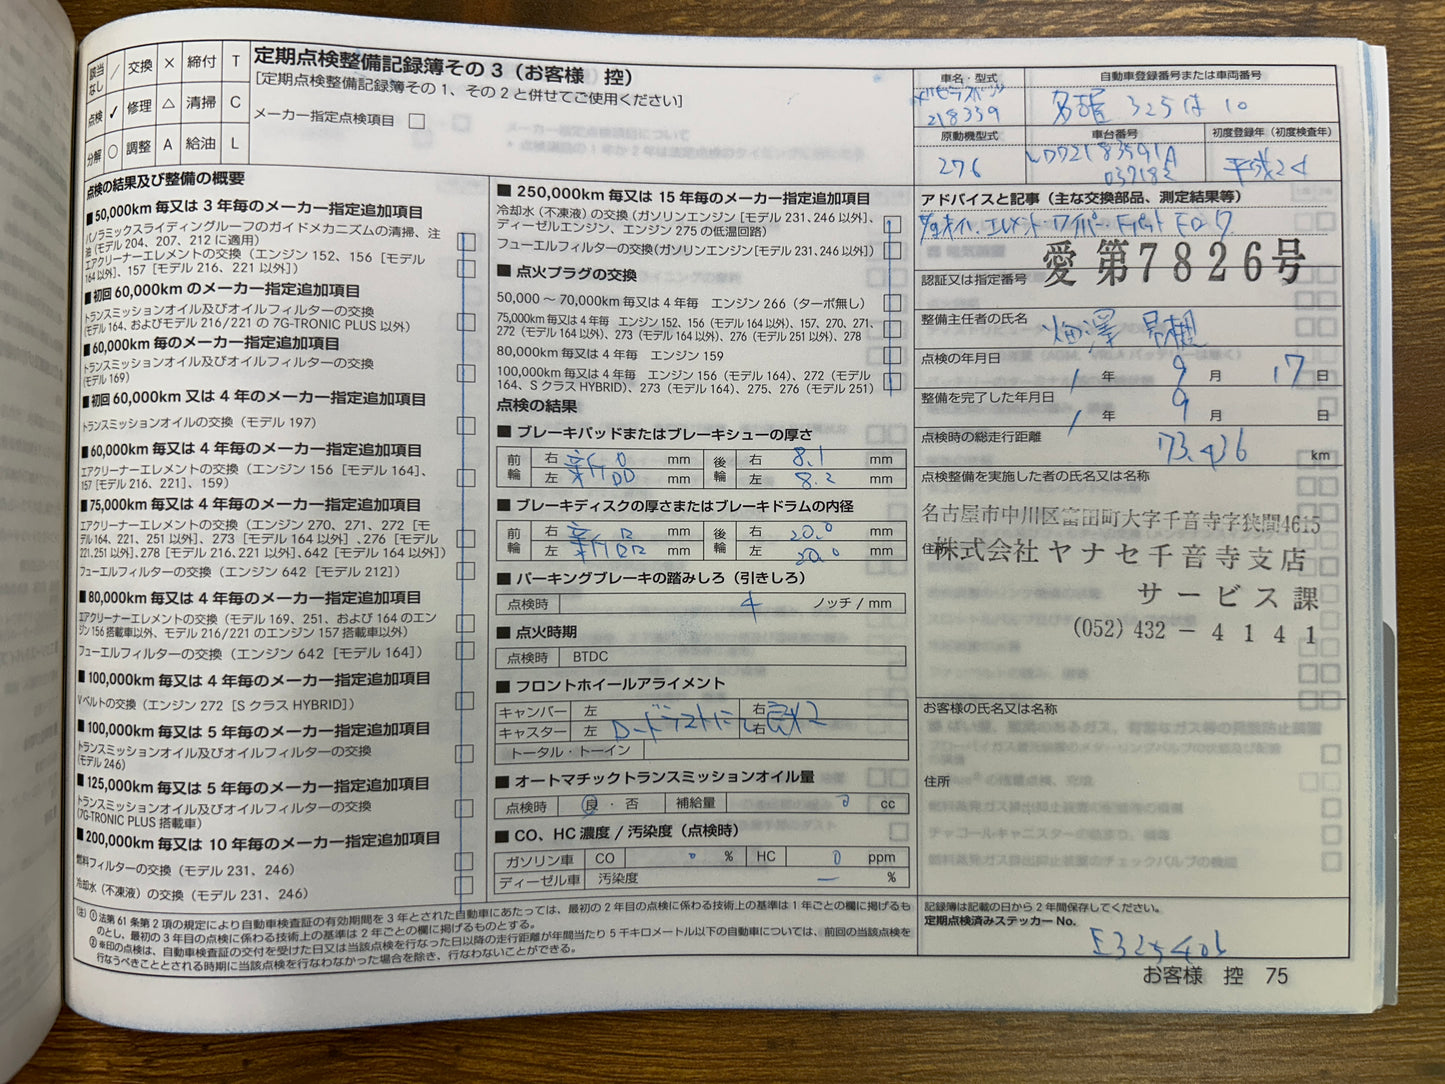 該当なし / 交換 × 締付 T
点検 ✓ 修理 △ 清掃 C
分解 ○ 調整 A 給油 L
定期点検整備記録簿その3（お客様 控）
[定期点検整備記録簿その1、その2と併せてご使用ください]
メーカー指定点検項目 □
点検の結果及び整備の概要
■50,000km毎又は3年毎のメーカー指定追加項目
パノラミックスライディングルーフのガイドメカニズムの清掃、注
油（モデル204、207、212に適用）
エアクリーナーエレメントの交換（エンジン152、156［モデル
164以外］、157［モデル216、221以外］）
■初回60,000kmのメーカー指定追加項目
トランスミッションオイル及びオイルフィルターの交換
（モデル164、およびモデル216/221の7G-TRONIC PLUS以外）
■60,000km毎のメーカー指定追加項目
トランスミッションオイル及びオイルフィルターの交換
（モデル169）
■初回60,000km又は4年毎のメーカー指定追加項目
トランスミッションオイルの交換（モデル197）
■60,000km毎又は4年毎のメーカー指定追加項目
エアクリーナーエレメントの交換（エンジン156［モデル164］、
157［モデル216、221］、159）
■75,000km毎又は4年毎のメーカー指定追加項目
エアクリーナーエレメントの交換（エンジン270、271、272［モ
デル164、221、251以外］、273［モデル164以外］、276［モデル
221,251以外］、278［モデル216、221以外］、642［モデル164以外］）
フューエルフィルターの交換（エンジン642［モデル212］）
■80,000km毎又は4年毎のメーカー指定追加項目
エアクリーナーエレメントの交換（モデル169、251、および164のエン
ジン156搭載車以外、モデル216/221のエンジン157搭載車以外）
フューエルフィルターの交換（エンジン642［モデル164］）
■100,000km毎又は4年毎のメーカー指定追加項目
Vベルトの交換（エンジン272［SクラスHYBRID］）
■100,000km毎又は5年毎のメーカー指定追加項目
トランスミッションオイル及びオイルフィルターの交換
（モデル246）
■125,000km毎又は5年毎のメーカー指定追加項目
トランスミッションオイル及びオイルフィルターの交換
（7G-TRONIC PLUS搭載車）
■200,000km毎又は10年毎のメーカー指定追加項目
燃料フィルターの交換（モデル231、246）
冷却水（不凍液）の交換（モデル231、246）
■250,000km毎又は15年毎のメーカー指定追加項目
冷却水（不凍液）の交換（ガソリンエンジン［モデル231、246以外］、
ディーゼルエンジン、エンジン275の低温回路）
フューエルフィルターの交換（ガソリンエンジン［モデル231、246以外］）
■点火プラグの交換
50,000～70,000km毎又は4年毎 エンジン266（ターボ無し）
75,000km毎又は4年毎 エンジン152、156（モデル164以外）、157、270、271、
272（モデル164以外）、273（モデル164以外）、276（モデル251以外）、278
80,000km毎又は4年毎 エンジン159
100,000km毎又は4年毎 エンジン156（モデル164）、272（モデル
164、SクラスHYBRID）、273（モデル164）、275、276（モデル251）
点検の結果
■ブレーキパッドまたはブレーキシューの厚さ
前輪 右 新品 mm 後輪 右 8.1 mm
左 新品 mm 左 8.2 mm
■ブレーキディスクの厚さまたはブレーキドラムの内径
前輪 右 新品 mm 後輪 右 20.0 mm
左 新品 mm 左 20.0 mm
■パーキングブレーキの踏みしろ（引きしろ）
点検時 4 ノッチ/mm
■点火時期
点検時 BTDC
■フロントホイールアライメント
キャンバー 左 右
キャスター 左 ロードテストにし 右
トータル・トーイン
■オートマチックトランスミッションオイル量
点検時 良・否 補給量 0 cc
■CO、HC濃度/汚染度（点検時）
ガソリン車 CO 0 % HC 0 ppm
ディーゼル車 汚染度 — %
（注）①法第61条第2項の規定により自動車検査証の有効期間を3年とされた自動車にあたっては、最初の2年目の点検に係わる技術上の基準は1年ごとの欄に掲げるも
のとし、最初の3年目の点検に係わる技術上の基準は2年ごとの欄に掲げるものとする。
②※印の点検は、自動車検査証の交付を受けた日又は当該点検を行なった日以降の走行距離が年間当たり5千キロメートル以下の自動車については、前回の当該点検を
行なうべきこととされる時期に当該点検を行なわなかった場合を除き、行なわないことができる。
車名・型式
218359
自動車登録番号または車両番号
名古屋 325 は 10
原動機型式
276
車台番号
WDD2183591A
037182
初度登録年（初度検査年）
平成24
アドバイスと記事（主な交換部品、測定結果等）
エレメント・ワイパー・Fパット Fロータ
認証又は指定番号
愛第7826号
整備主任者の氏名
点検の年月日
1年 9月 17日
整備を完了した年月日
1年 9月 日
点検時の総走行距離
73,426 km
点検整備を実施した者の氏名又は名称
名古屋市中川区富田町大字千音寺字狭間4615
住所
株式会社ヤナセ千音寺支店
サービス課
(052)432-4141
お客様の氏名又は名称
住所
記録簿は記載の日から2年間保存してください。
定期点検済みステッカーNo.
E325406
お客様 控 75